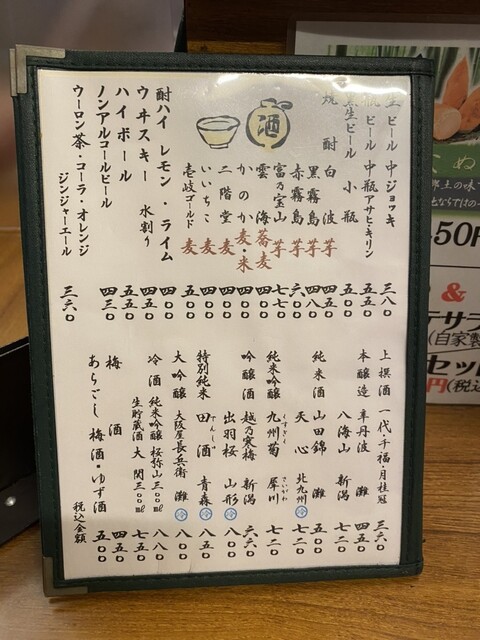 生ビール 中ジョッキ 三八〇
瓶ビール 中瓶アサヒ・キリン 五五〇
黒生ビール 小瓶 五五〇
焼酎 白波 芋 四四〇
黒霧島 芋 四八〇
赤霧島 芋 六〇〇
富乃宝山 芋 七七〇
雲海 蕎麦 四四〇
かのか 麦・米 四四〇
二階堂 麦 四四〇
いいちこ 麦 四四〇
壱岐ゴールド 麦 五〇〇
酒
酎ハイ レモン・ライム 四四〇
ウヰスキー 水割り 四五〇
ハイボール 五五〇
ノンアルコールビール 四三〇
ウーロン茶・コーラ・オレンジ
ジンジャーエール 三六〇
上撰酒 一代・千福・月桂冠 三六〇
本醸造 辛丹波 灘 四四〇
八海山 新潟 七二〇
純米酒 山田錦 灘 五五〇
天心 北九州 冷 七二〇
純米吟醸 九州菊 くすぎく 犀川 さいがわ 七二〇
吟醸酒 越乃寒梅 新潟 六六〇
出羽桜 山形 冷 八〇〇
特別純米 田酒 でんしゅ 青森 冷 八五〇
大吟醸 大阪屋長兵衛 灘 冷 八〇〇
冷酒 純米吟醸 桜弥山 三〇〇ml 八八〇
生貯蔵酒 大関 三〇〇ml 七五〇
梅酒 五五〇
あらごし 梅酒・ゆず酒 五〇〇
税込金額